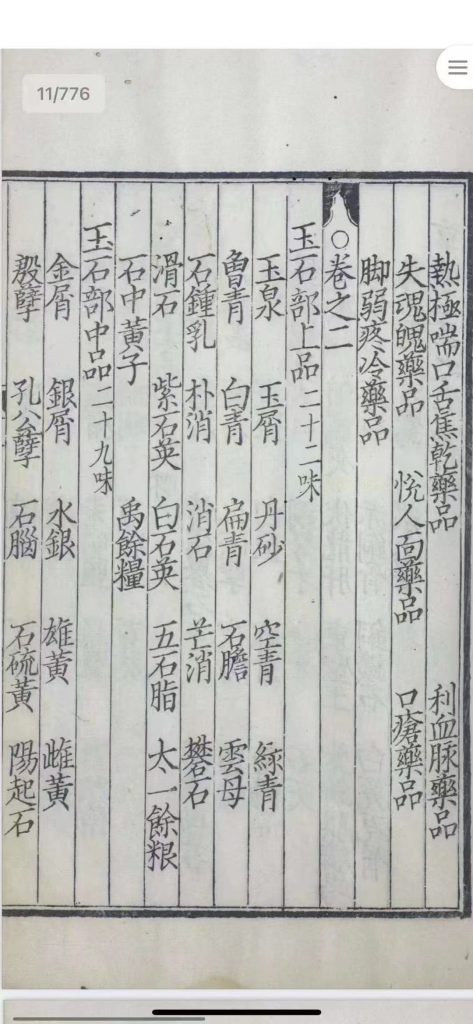 11/776
熱極喘口舌焦乾藥品 利血脉藥品
失魂魄藥品 悅人面藥品 口瘡藥品
脚弱疼冷藥品
○卷之二
玉石部上品二十二味
玉泉 玉屑 丹砂 空青 綠青
魯青 白青 扁青 石膽 雲母
石鍾乳 朴消 消石 芒消 礬石
滑石 紫石英 白石英 五石脂 太一餘粮
石中黃子 禹餘糧
玉石部中品二十九味
金屑 銀屑 水銀 雄黃 雌黃
殷孽 孔公孽 石腦 石硫黃 陽起石